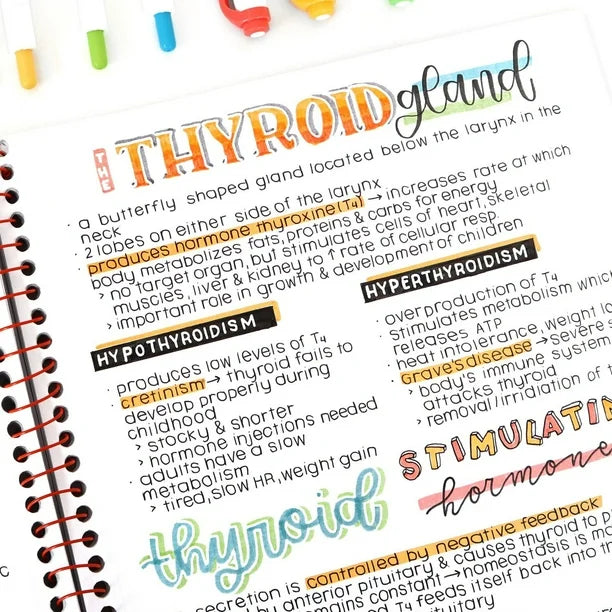 THE THYROID gland
· a butterfly shaped gland located below the larynx in the
neck
· 2 lobes on either side of the larynx
· produces hormone thyroxine (T4) → increases rate at which
body metabolizes fats, proteins & carbs for energy
> no target organ, but stimulates cells of heart, skeletal
muscles, liver & kidney to ↑ rate of cellular resp.
> important role in growth & development of children
HYPOTHYROIDISM
· produces low levels of T4
· cretinism → thyroid fails to
develop properly during
childhood
> stocky & shorter
> hormone injections needed
· adults have a slow
metabolism
> tired, slow HR, weight gain
HYPERTHYROIDISM
· overproduction of T4
stimulates metabolism which
releases ATP
· heat intolerance, weight lo
· Grave's disease → severe s
> body's immune system
attacks thyroid
> removal/irradiation of t
thyroid STIMULATIN
hormone
secretion is controlled by negative feedback
by anterior pituitary & causes thyroid to p
mains constant → homeostasis is ma
d T4 feeds itself back into th
pituitary